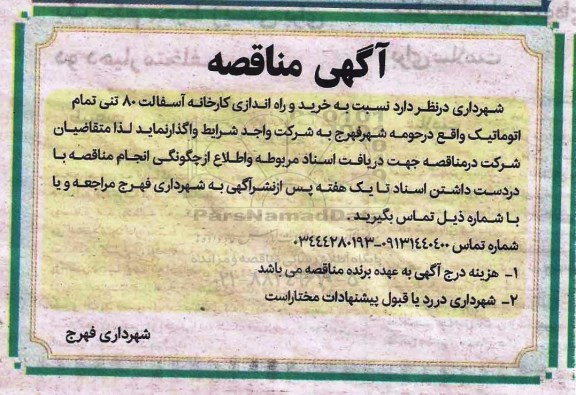 آگهی مناقصه
شهرداری درنظر دارد نسبت به خرید و راه اندازی کارخانه آسفالت ۸۰ تنی تمام
اتوماتیک واقع درحومه شهرفهرج به شرکت واجد شرایط واگذارنماید لذا متقاضیان
شرکت درمناقصه جهت دریافت اسناد مربوطه واطلاع ازچگونگی انجام مناقصه با
دردست داشتن اسناد تا یک هفته پس ازنشرآگهی به شهرداری فهرج مراجعه و یا
با شماره ذیل تماس بگیرید.
ParsNamadData
شماره تماس ۰۹۱۳۱۴۴۰۴۰۰-۰۳۴۴۴۲۸۰۱۹۳
۱- هزینه درج آگهی به عهده برنده مناقصه می باشد
۲- شهرداری دررد یا قبول پیشنهادات مختاراست
شهرداری فهرج